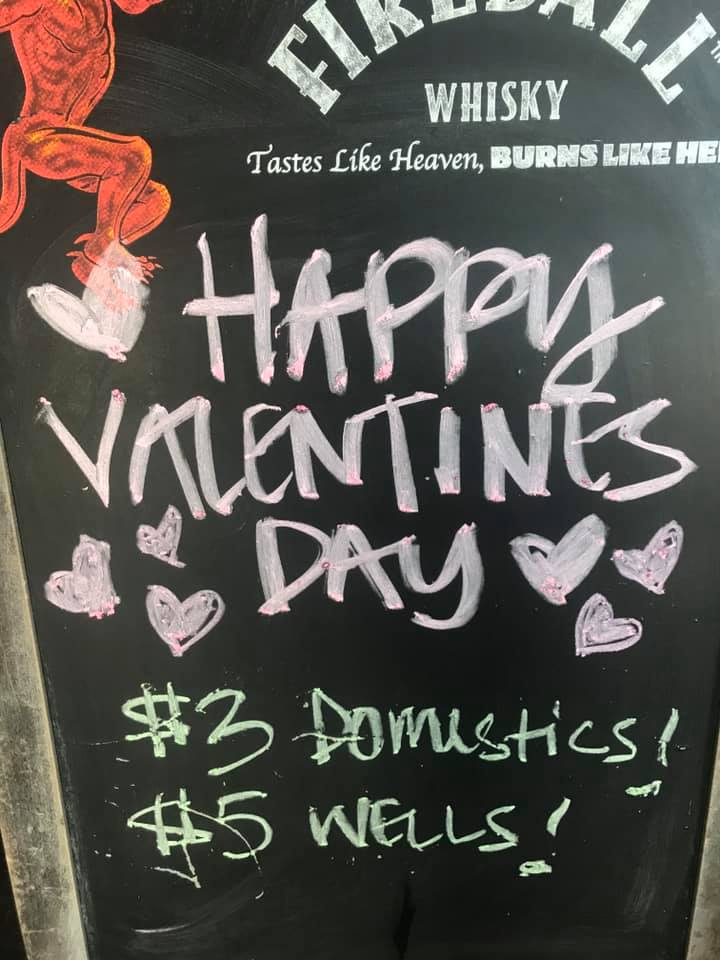 FIREBALL
WHISKY
Tastes Like Heaven, BURNS LIKE HE
HAPPY
VALENTINES
DAY
$3 Domestics!
$5 WELLS!